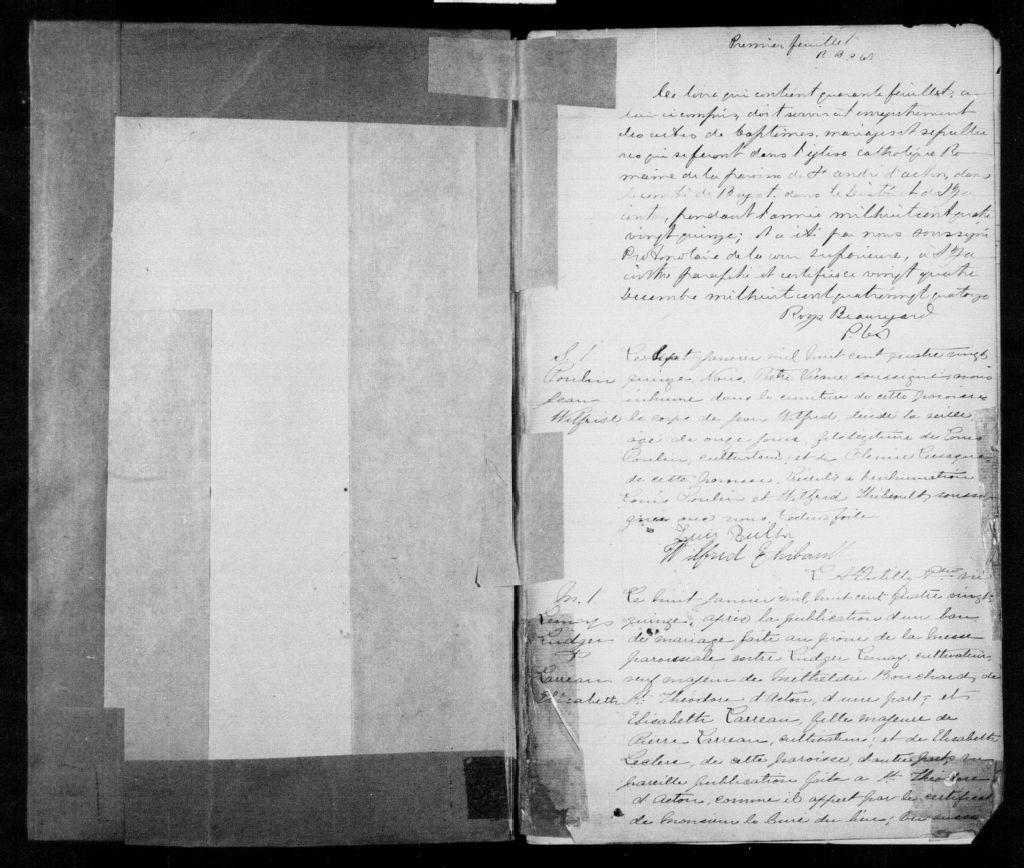 Premier feuillet
Ce livre qui contient quarante feuillets, ce-
lui ci compris, doit servir à l'enregistrement
des actes de baptêmes, mariages et sépultu
res qui se feront dans l'église catholique Ro
maine de la paroisse de St André d'acton, dans
le comté de Bagot, dans le district de St Hya
cinthe, pendant l'année mil huit cent quatre
vingt quinze; et a été par nous soussigné
Protonotaire de la cour supérieure, à St Hya
cinthe paraphé et certifié ce vingt quatre
Décembre mil huit cent quatre vingt quatorze
Roy & Beauregard
P.C.S.
S. 1.
Poulin
Jean
Wilfrid
Le sept Janvier mil huit cent quatre vingt
quinze, Nous, Prêtre Vicaire soussigné, avons
inhumé dans le cimetière de cette paroisse
le corps de Jean Wilfrid décédé la veille
âgé de onze jours, fils légitime de Louis
Poulin, cultivateur, et de
de cette paroisse. Présents à l'inhumation
Louis Poulin et Wilfrid Thibault, soussi
gnés avec nous. Lecture faite.
Wilfrid Thibault
Ptre Vic
M. 1.
Lemay
Ludger
&
Larreau
Elisabeth
Le huit Janvier mil huit cent quatre vingt
quinze, après la publication d'un ban
de mariage faite au prône de la messe
paroissiale entre Ludger Lemay, cultivateur,
veuf majeur de Methildie Bouchard, de
St Théodore d'Acton, d'une part; et
Elisabeth Larreau, fille majeure de
Pierre Larreau, cultivateur, et de Elisabeth
Leclerc, de cette paroisse, d'autre part; vu
pareille publication faite à St Théodore
d'Acton, comme il appert par le certificat
de Monsieur le Curé du lieu; vu aussi